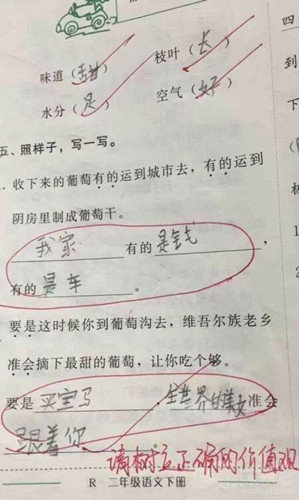 枝叶（长）
味道（甜）
水分（足） 空气（好）
四
到
五、照样子，写一写。
收下来的葡萄有的运到城市去，有的运到
阴房里制成葡萄干。
我家有的是钱，
有的是车。
要是这时候你到葡萄沟去，维吾尔族老乡
准会摘下最甜的葡萄，让你吃个够。
要是买宝马，全世界的美女准会
跟着你
请树立正确的价值观
R 二年级语文下册